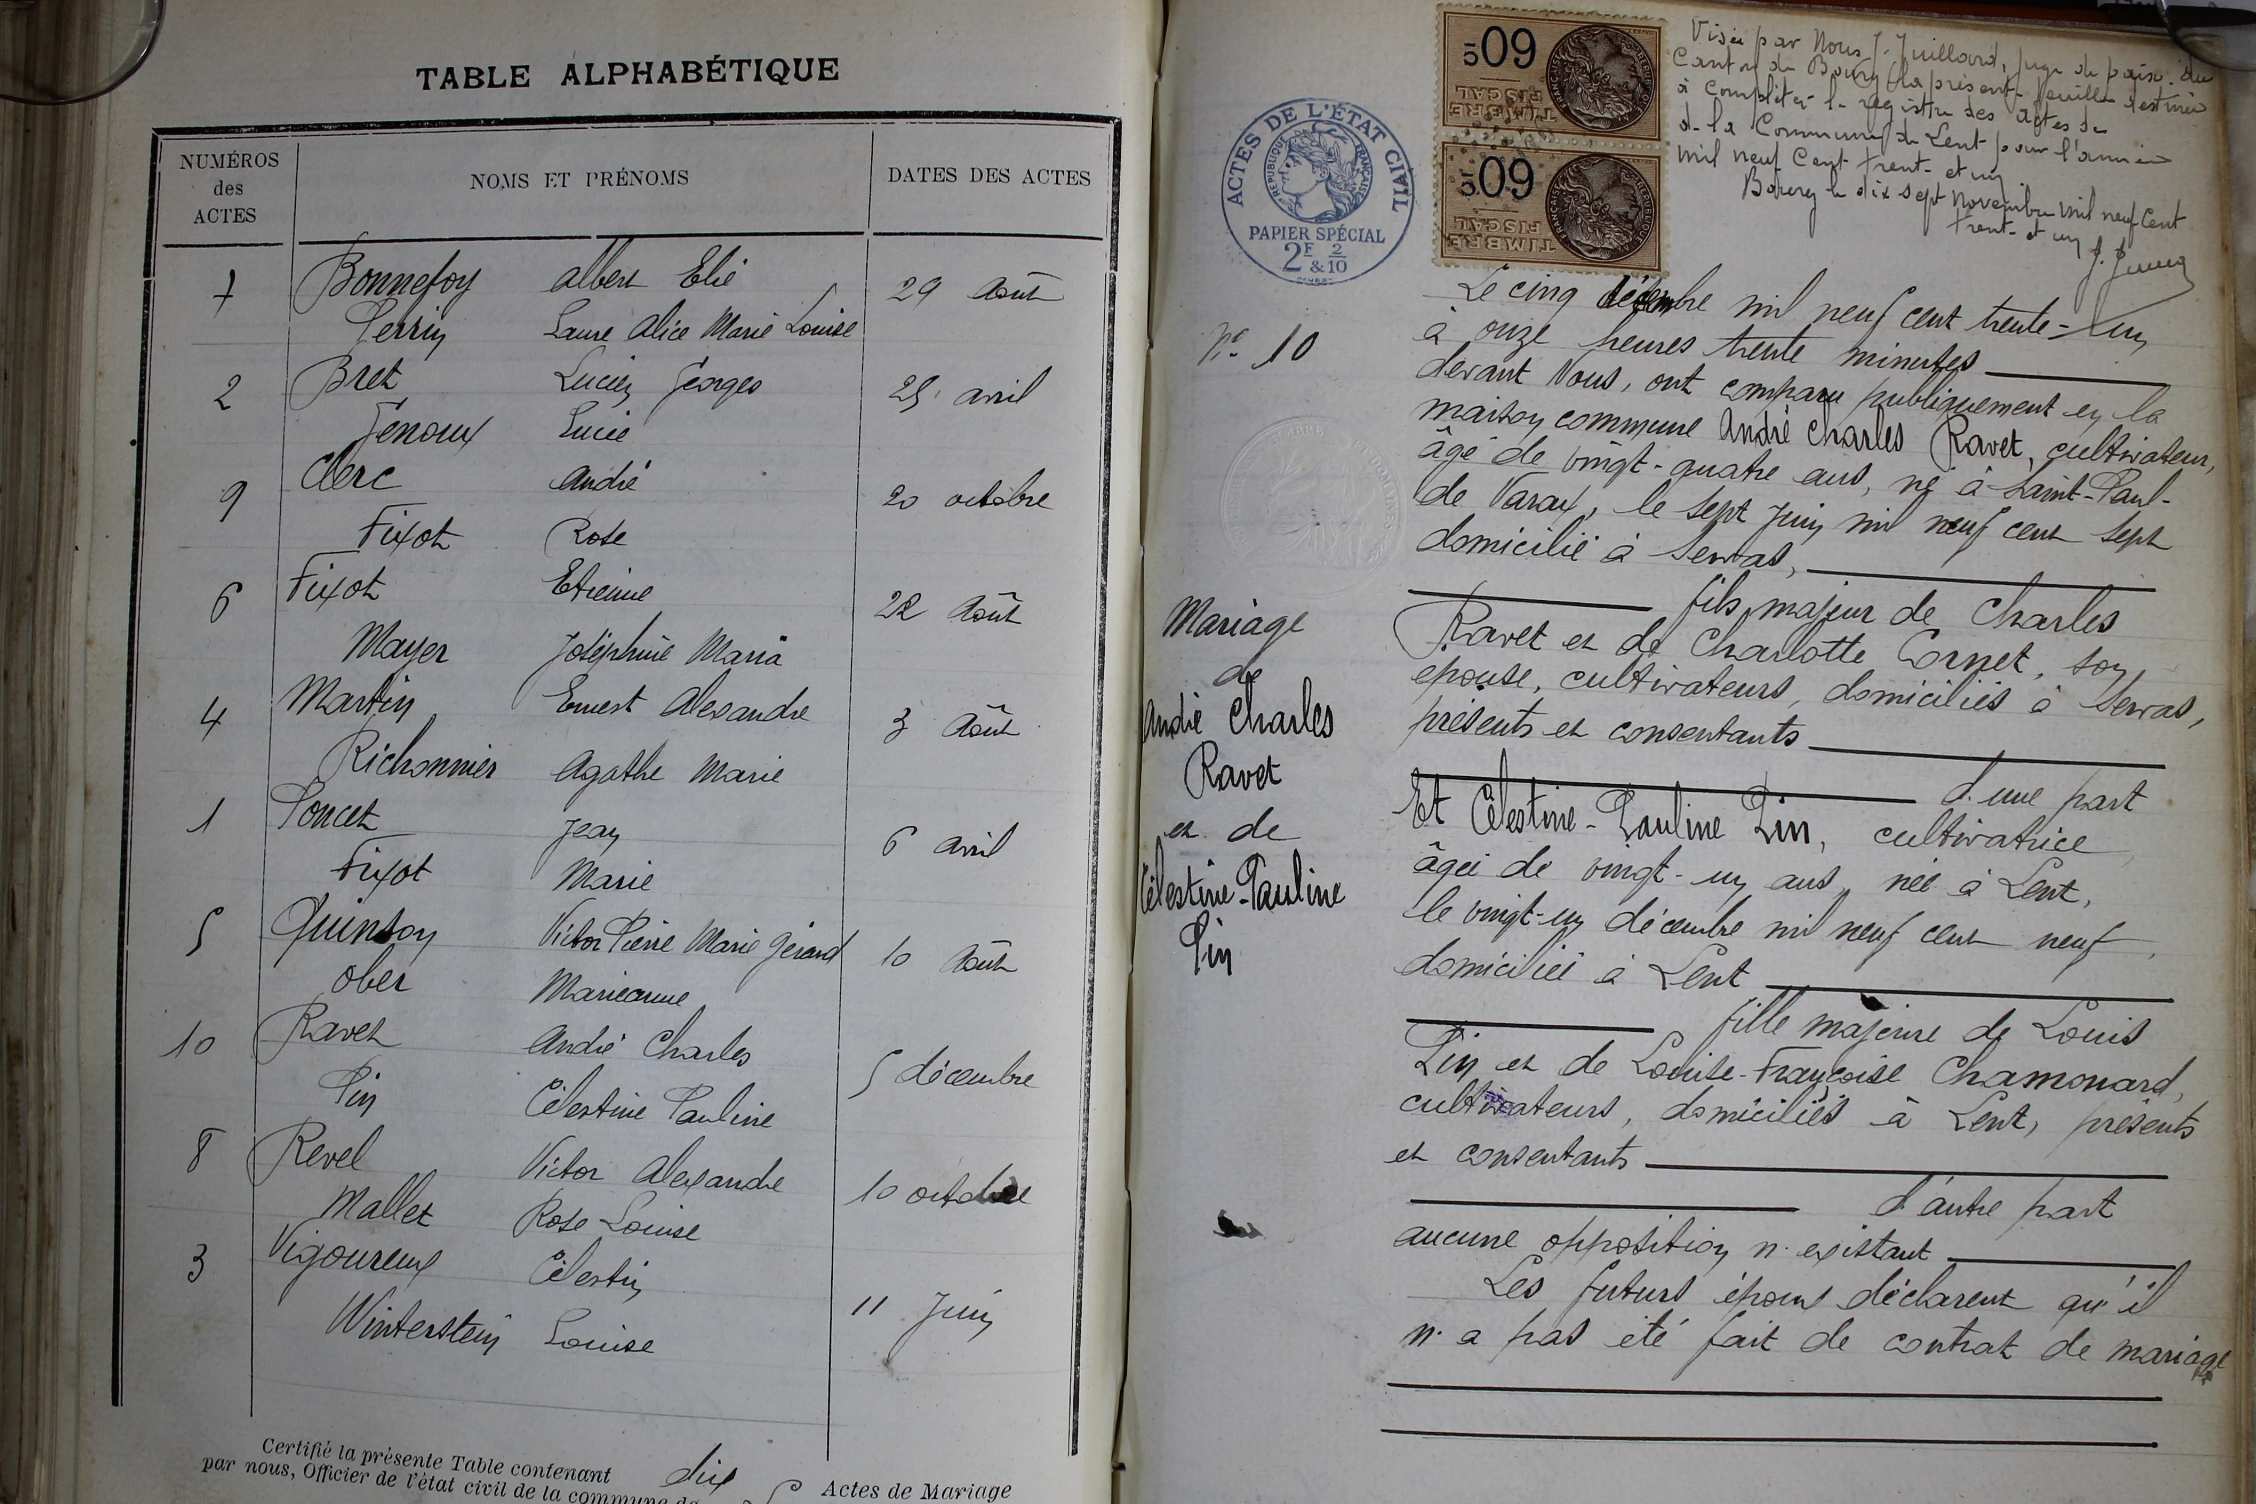 TABLE ALPHABÉTIQUE
NUMÉROS des ACTES
NOMS ET PRÉNOMS
DATES DES ACTES
7 Bonnefoy Albert Elie 29 Août
Perrin Laure Alice Marie Louise
2 Bret Lucien Georges 25 avril
Fenoux Lucie
9 Clerc André 20 octobre
Fixot Rose
6 Fixot Etienne 22 Août
Mayer Joséphine Maria
4 Martin Ernest Alexandre 3 Août
Richonnier Agathe Marie
1 Poncet Jean 6 avril
Fixot Marie
5 Quinson Victor Pierre Marie Gérard 10 Août
Ober Marieanne
10 Ravet André Charles 5 décembre
Pin Célestine Pauline
8 Revel Victor Alexandre 10 octobre
Mallet Rose Louise
3 Vigoureux Célestin 11 Juin
Winterstein Louise
Certifié la présente Table contenant dix Actes de Mariage
par nous, Officier de l'état civil de la commune de
ACTES DE L'ÉTAT CIVIL
REPUBLIQUE FRANÇAISE
PAPIER SPÉCIAL
2F & 2/10
TIMBRE FISCAL
TIMBRE FISCAL
Visée par Nous J. Juillard, juge de paix du
Canton de Bourg la présente feuille destinée
à compléter le registre des actes de
de la Commune de Lent pour l'année
mil neuf cent trente et un
Bourg le dix sept novembre mil neuf cent
trente et un
N° 10
Mariage
de
André Charles
Ravet
et de
Célestine-Pauline
Pin
Le cinq décembre mil neuf cent trente-un
à onze heures trente minutes
devant Nous, ont comparu publiquement en la
maison commune André Charles Ravet, cultivateur,
âgé de vingt-quatre ans, né à Saint-Paul-
de Varax, le sept Juin mil neuf cent sept
domicilié à Servas,
fils majeur de Charles
Ravet et de Charlotte Cornet, son
épouse, cultivateurs, domiciliés à Servas,
présents et consentants
d'une part
Et Célestine-Pauline Pin, cultivatrice,
âgée de vingt-un ans, née à Lent,
le vingt-un décembre mil neuf cent neuf,
domiciliée à Lent
fille majeure de Louis
Pin et de Louise-Françoise Chamonard,
cultivateurs, domiciliés à Lent, présents
et consentants
d'autre part
aucune opposition n'existant
Les futurs époux déclarent qu'il
n'a pas été fait de contrat de mariage